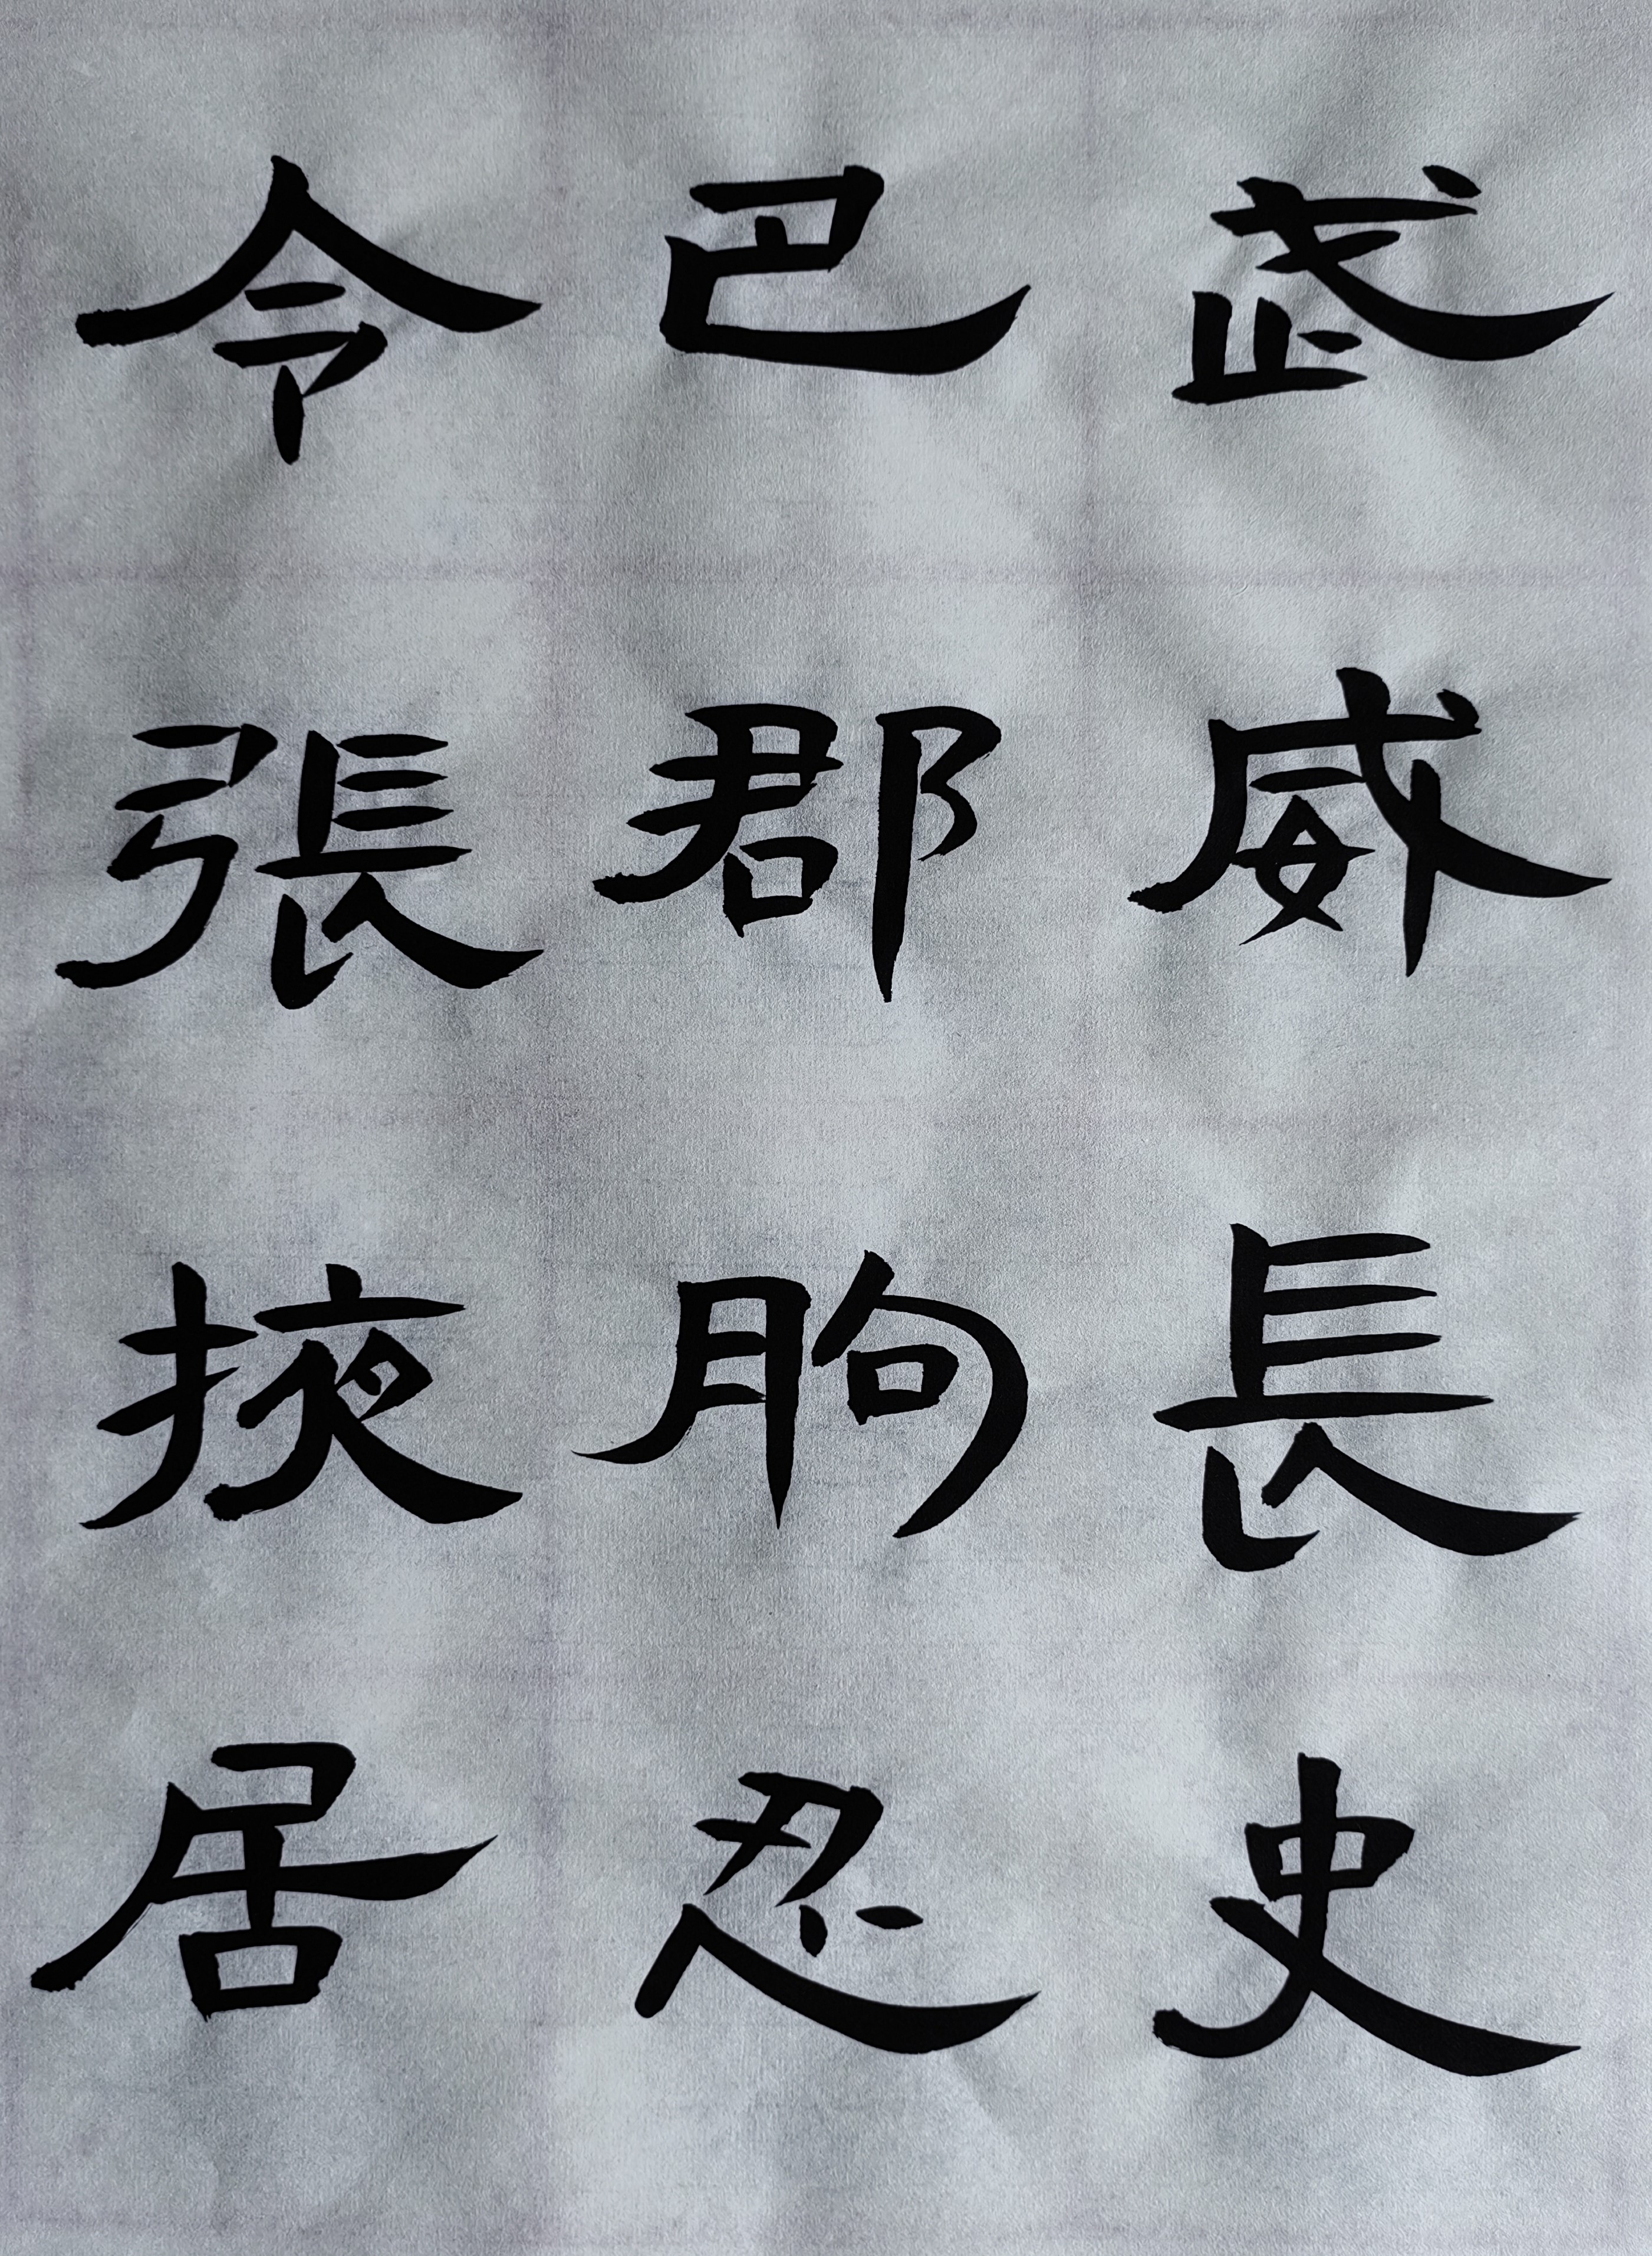 武威長史
巴郡朐忍
令張掖居